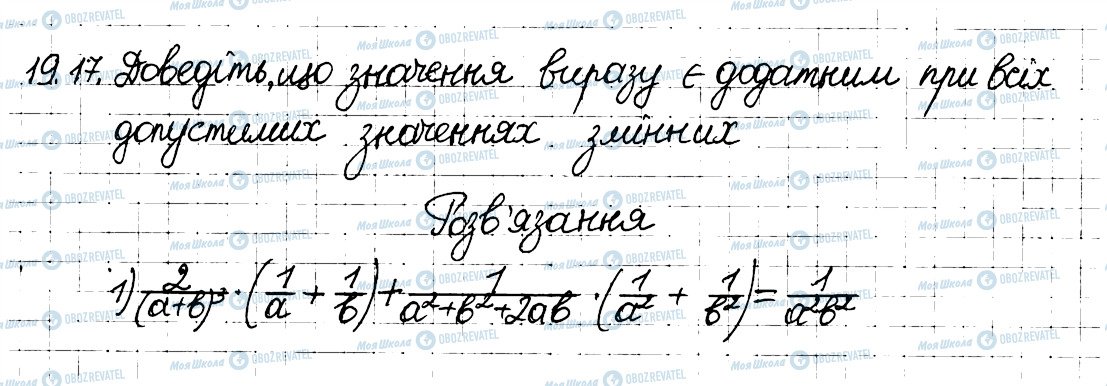 19.17. Доведіть, що значення виразу є додатним при всіх
допустимих значеннях змінних
Розв'язання
1) 2/(a+b)³ · (1/a + 1/b) + 1/(a²+b²+2ab) · (1/a² + 1/b²) = 1/(a²b²)
МояШкола OBOZREVATEL